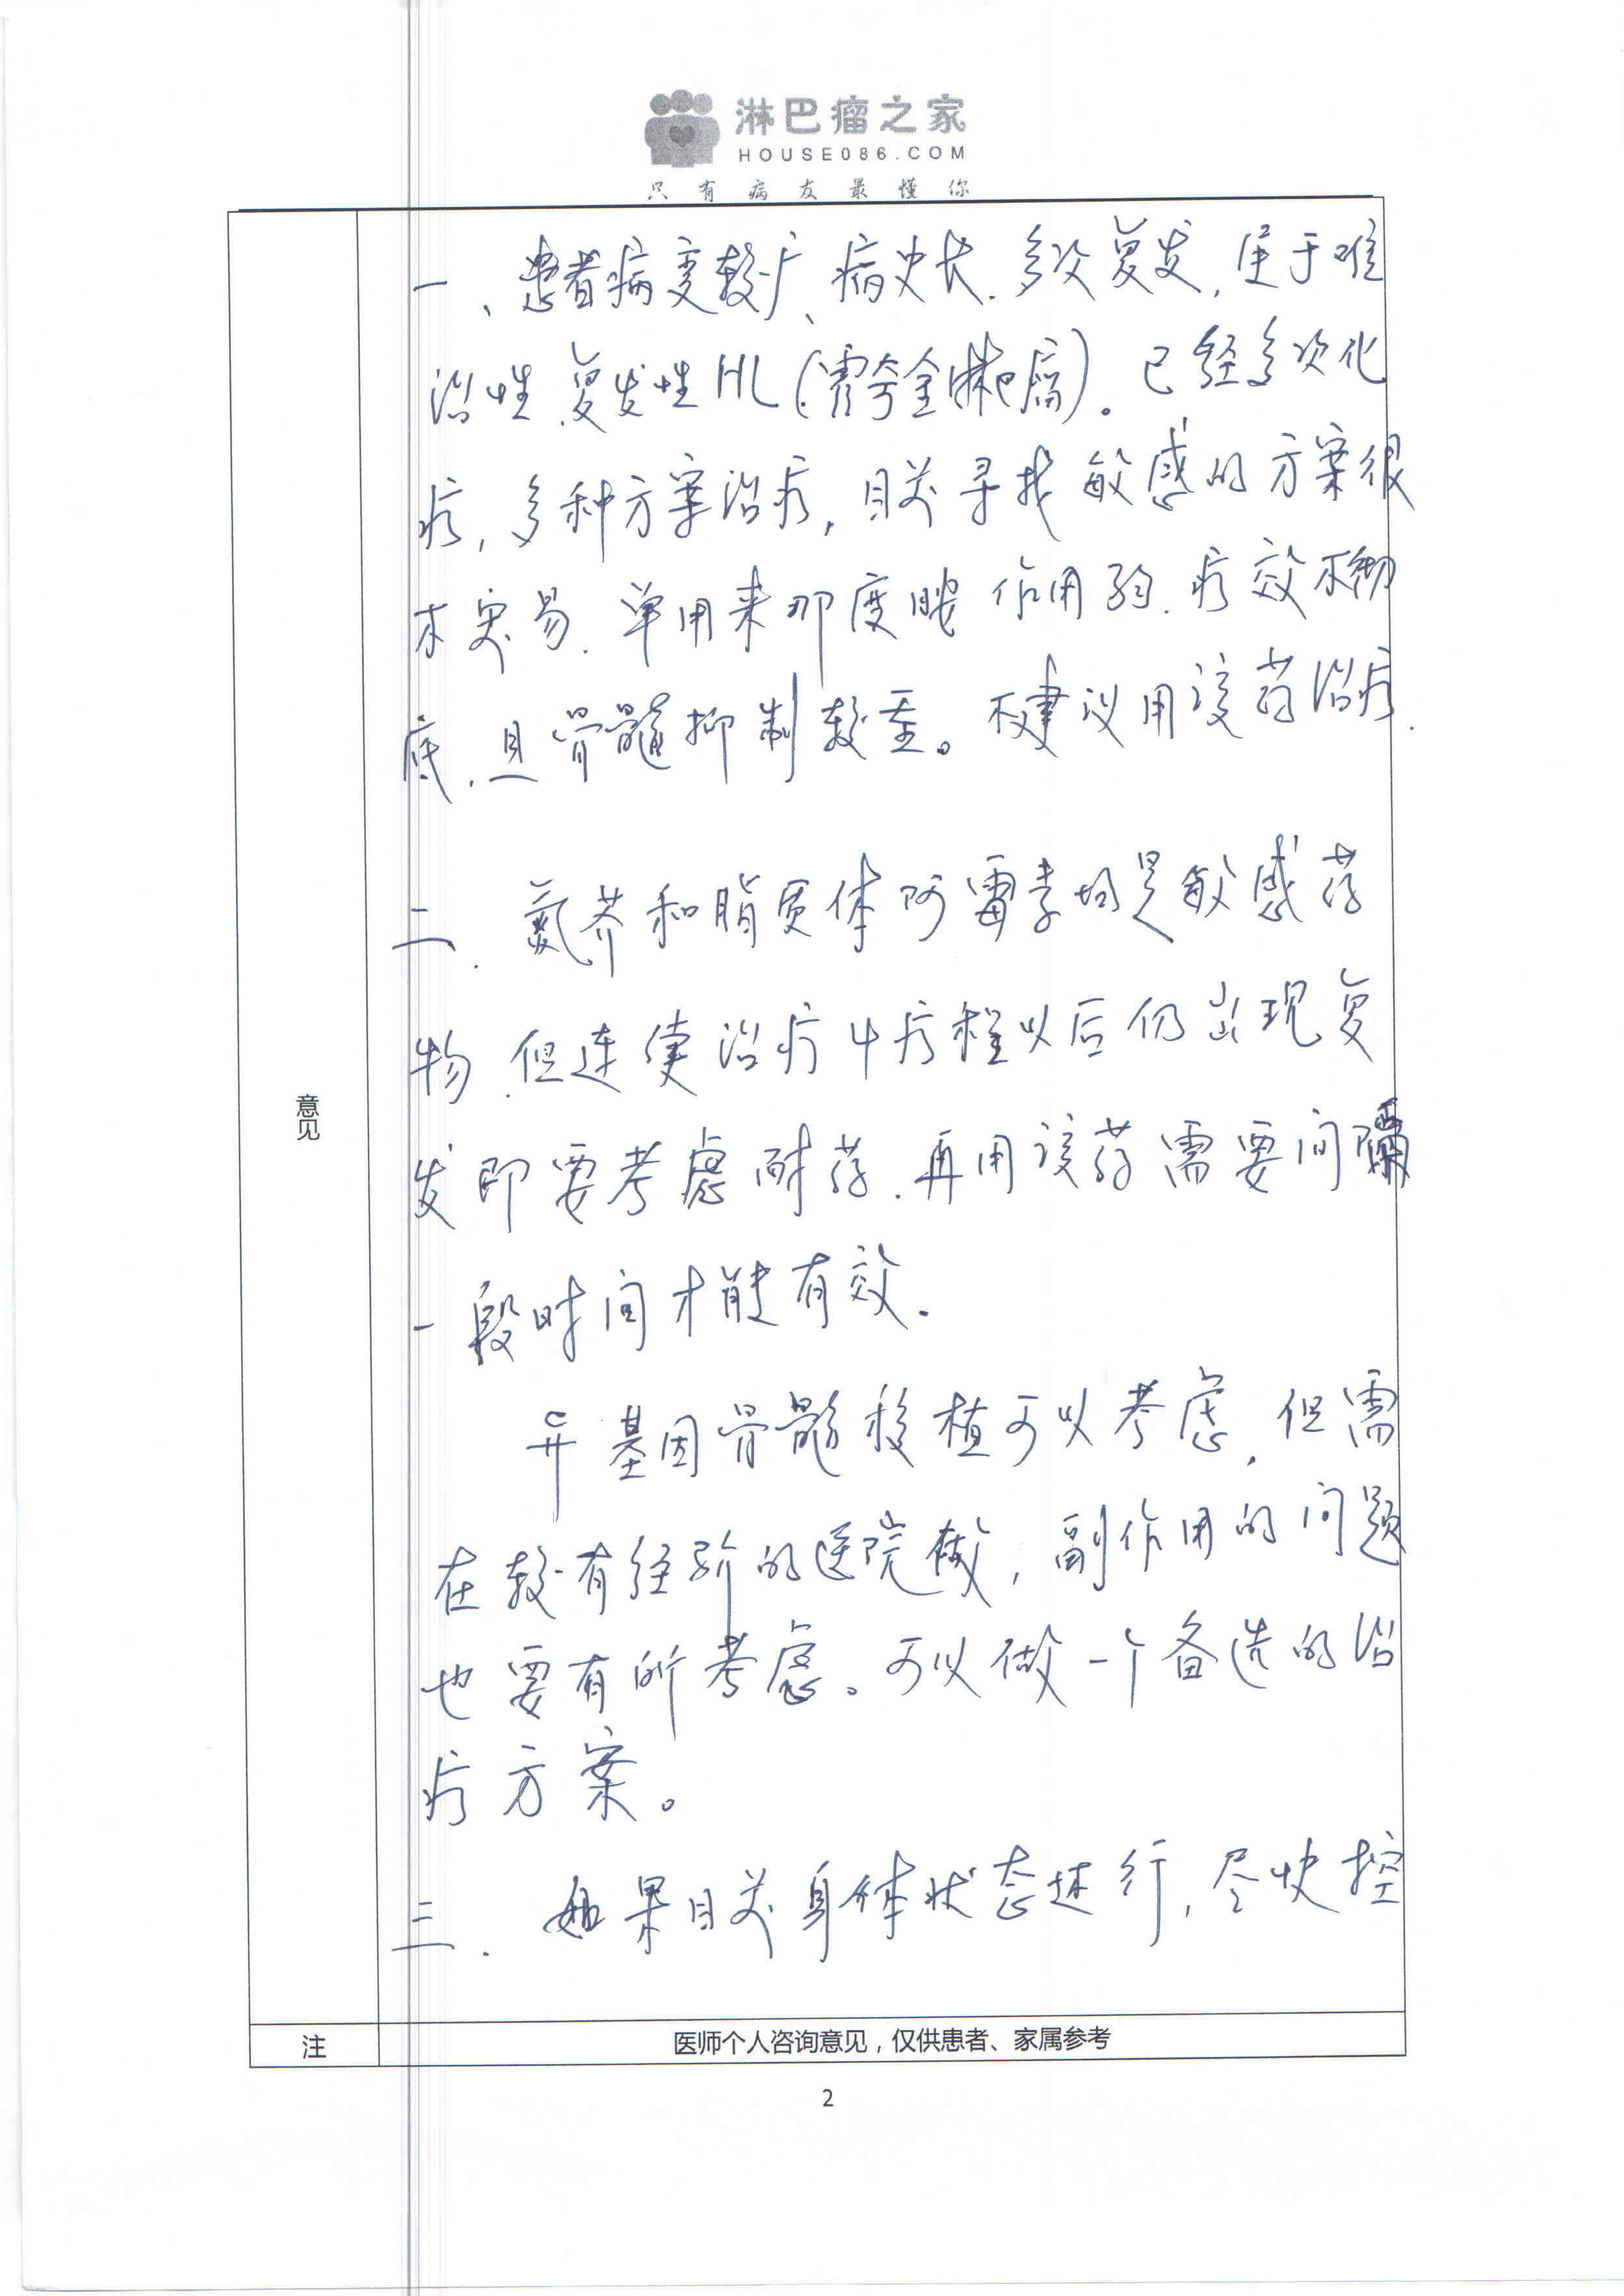 淋巴瘤之家
HOUSE086.COM
只有病友最懂你
一、患者病变较广、病史长.多次复发,属于难
治性、复发性HL(霍奇金淋巴瘤)。已经多次化
疗,多种方案治疗,目前寻找敏感的方案很
不容易.单用来那度胺作用弱.疗效不彻
底.且骨髓抑制较重。不建议用该药治疗.
二.氮芥和脂质体阿霉素均是敏感药
物.但连续治疗4疗程以后仍出现复
发即要考虑耐药.再用该药需要间隔
一段时间才能有效.
异基因骨髓移植可以考虑,但需
在较有经验的医院做,副作用的问题
也要有所考虑。可以做一个备选的治
疗方案。
三.如果目前身体状态还行,尽快控
意见
注
医师个人咨询意见,仅供患者、家属参考
2